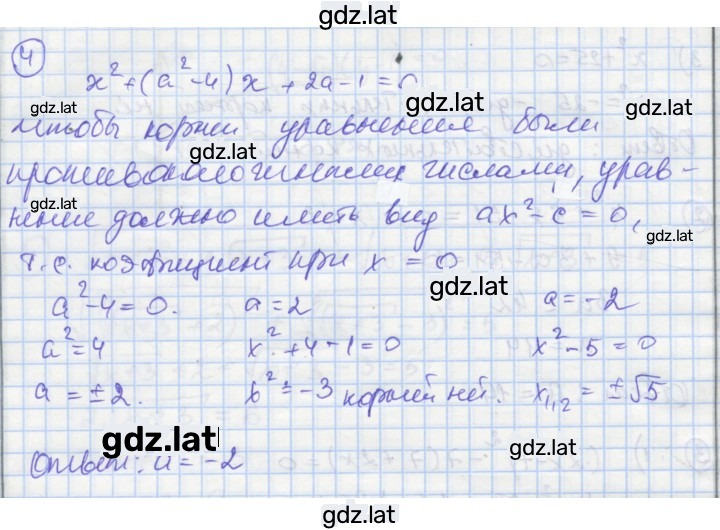 gdz.lat
4
x² + (a² - 4)x + 2a - 1 = 0
gdz.lat
gdz.lat
чтобы корни уравнения были
gdz.lat
противоположными числами, урав-
gdz.lat
нение должно иметь вид ax² - c = 0,
gdz.lat
т.е. коэффициент при x = 0
gdz.lat
a² - 4 = 0. a = 2 a = -2
a² = 4 x² + 4 - 1 = 0 x² - 5 = 0
gdz.lat
gdz.lat
a = ±2. x² = -3 корней нет. x₁,₂ = ±√5
gdz.lat
gdz.lat
Ответ: a = -2
gdz.lat
gdz.lat